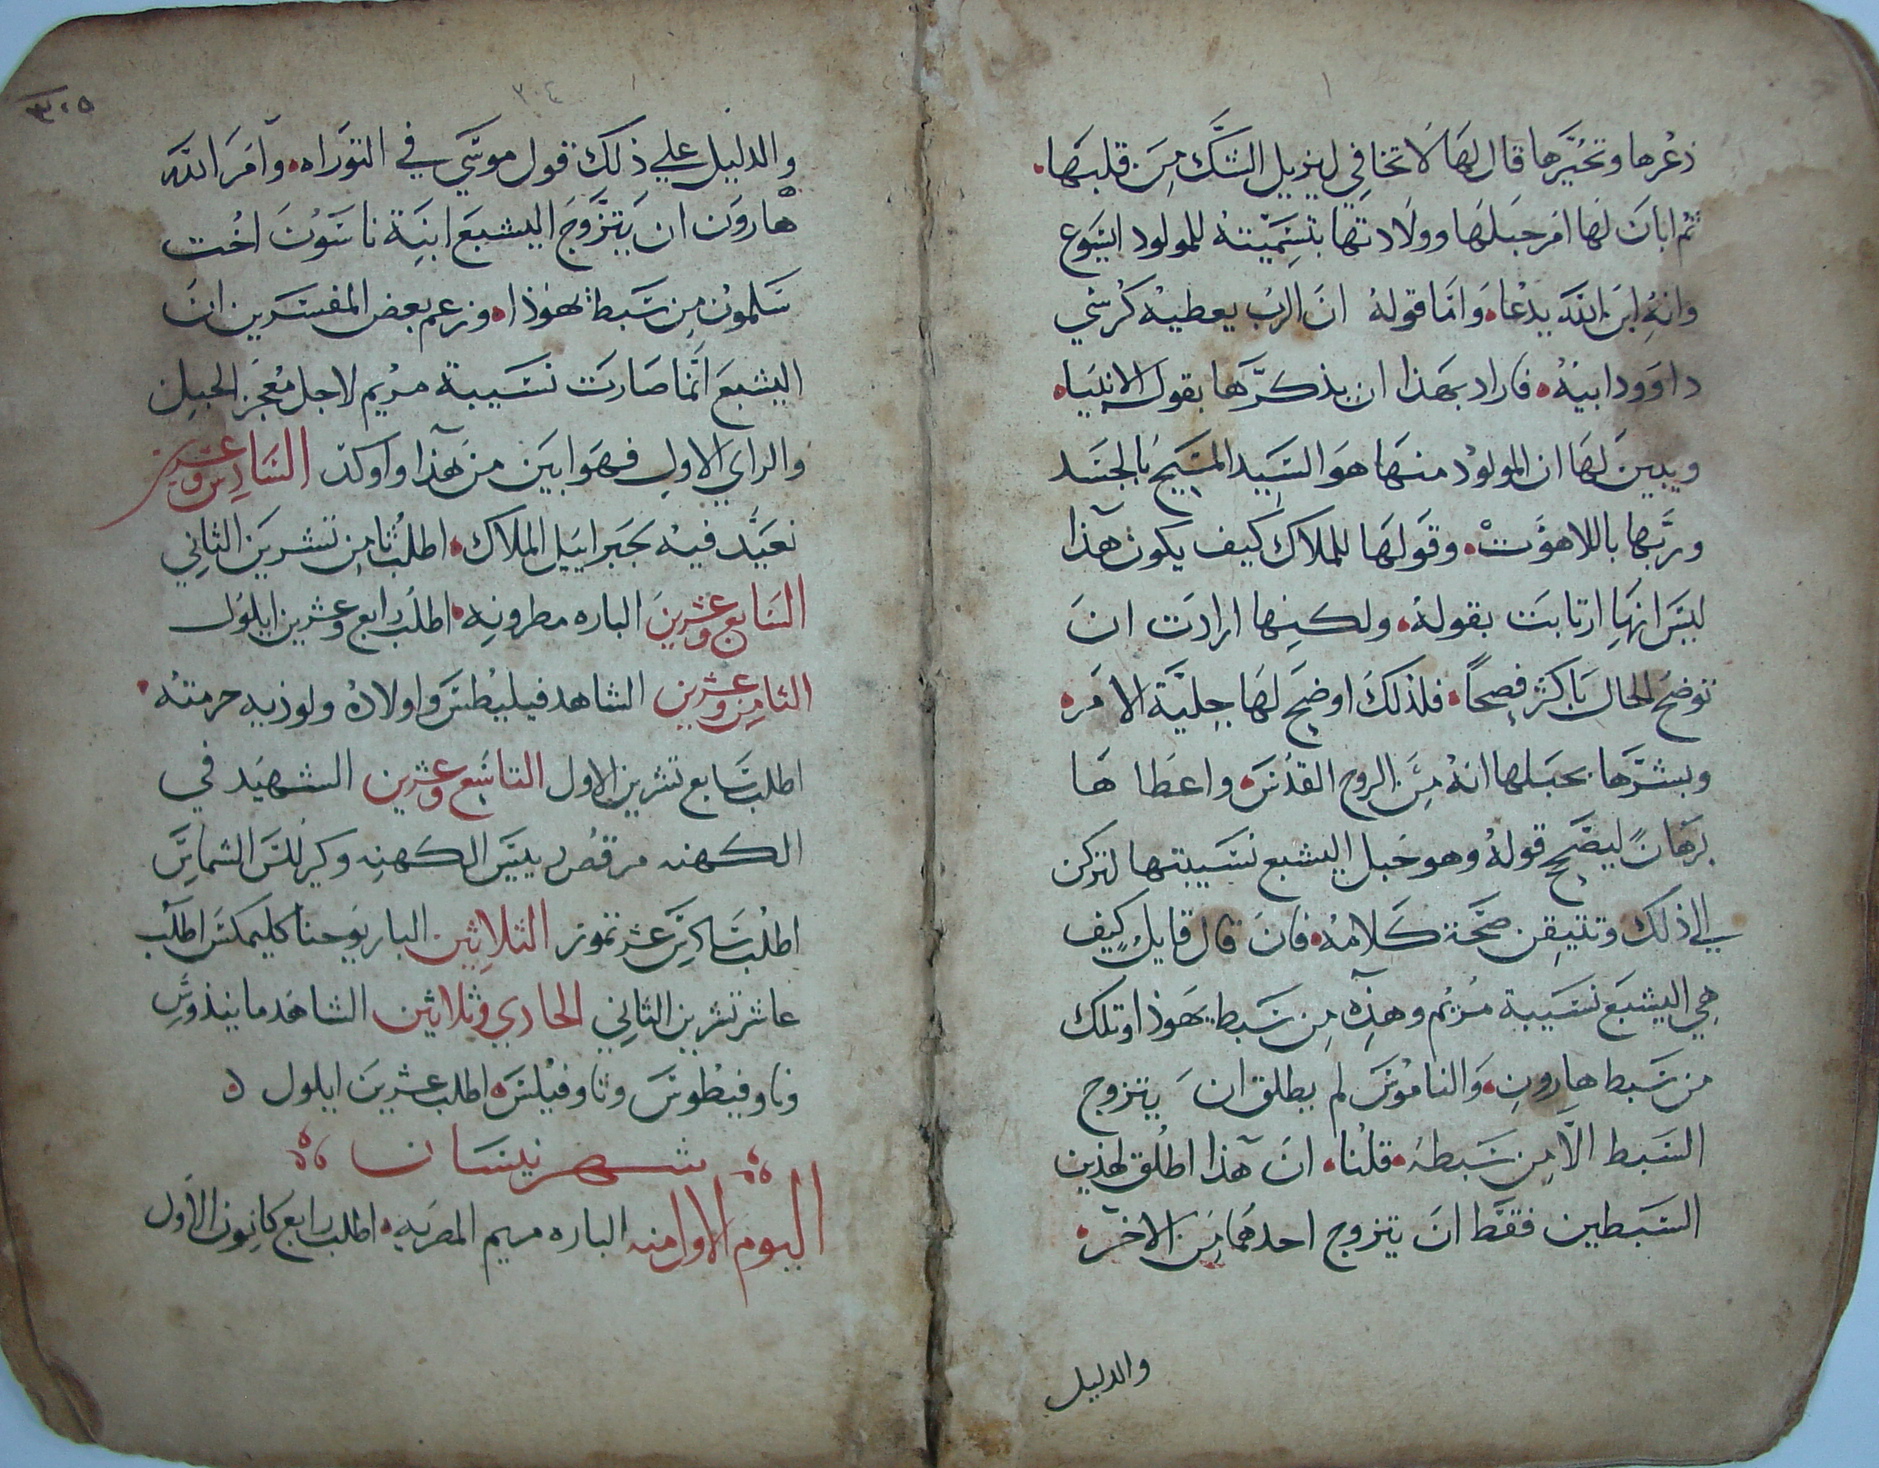 ذعْرها وتحيُّرها قال لهَا لَا تخافي ليزيل الشَّك مِنَ قلبهَا.
ثمْ ابانَ لهَا امَر حبَلهَا وولَادتها بتسِمَيتهُ للمولود ايسَوع
وانهُ ابنَ اللَّه يدْعَا. وَامَا قولهُ انَ الربْ يعطيهْ كرْسَي
داوَود ابيهْ. فاراد بهَذا ان يذكرَّها بقول الانبيَا.
ويبين لهَا ان المولوْد منهَا هوَ السَيد المسَيحْ بالجسَد
وربَّها باللاهوَتْ. وقوَلهَا للملاك كيف يكون هَذا
ليسَ انهَا ارتابَت بقولهُ. ولكنها ارادَت انَ
توضحَ الحال باكثر فصِحاً. فلذلكَ اوضحَ لهَا جليَّة الامَر.
وبشرَّها بحبَلها انهُ مِنَ الروح القدُسَ. واعطَاهَا
برهَانً ليصَّح قولهُ وهو حَبل اليشبع نسَيبتها لتركن
الي ذلك وتتيقن صحَّة كَلامهْ. فانَ قال قايل كيف
هِي اليشبعَ نسَيبة مرْيم وهذه مِن سَبط يهَوذا وتلك
من سَبط هارون. وَالنامْوسَ لم يطلق انَ يتزوج
السَبط الّا مِن سَبطهُ. قلنْا. انَ هَذا اطْلق لهذين
السَبطين فقطَ انَ يتزوج احدهمَا مِنَ الاخَر.
والدليل
٣٠٤
٣٠٥
والدليل علي ذلك قول موسَي في التوَراه. وآمَر اللَّه
هَارون ان يَتزَّوجَ اليشبعَ ابنَة ناسَوْنَ اخُت
سَلموْن مِن سَبط يهوْذا. وزعم بعض المفسَرين انَ
اليشبعَ انَّما صَارتَ نسَيبة مرْيم لاجل مُعْجَز الحبل
والراي الاول فهوَ ابيَن من هَذا واوكدّ السَادِس وعشرين
نعَيَّد فيهْ لجبَراييل الملاك. اطلبْ ثامِن تشرينَ الثاني
السَابع وعشرينَ الباره مطرونه. اطلب رابع وعشرين ايلول
الثامِن وعشرين الشاهد فيليبُطسَ واولادهْ ولوذيه حرمتهُ.
اطلب سَابع تشرين الاول التاسَع وعشرين الشهيَد في
الكهنه مرقصْ رييسَ الكهنِه وكيرللسَ الشماسَ
اطلْب سَادسَ عشر تموز الثلاثين البار يوَحنا كليمكسَ اطلَب
عاشر تشرين الثاني الحادي وثلاثين الشاهَد مانيذوسَ
وثاوفيطْوسَ وثاوفيْلسَ. اطلب عشرينَ ايلول ٥
شهر نيسَان
اليوم الاول منه الباره مريم المصَريه. اطلب رابع كانون الاول